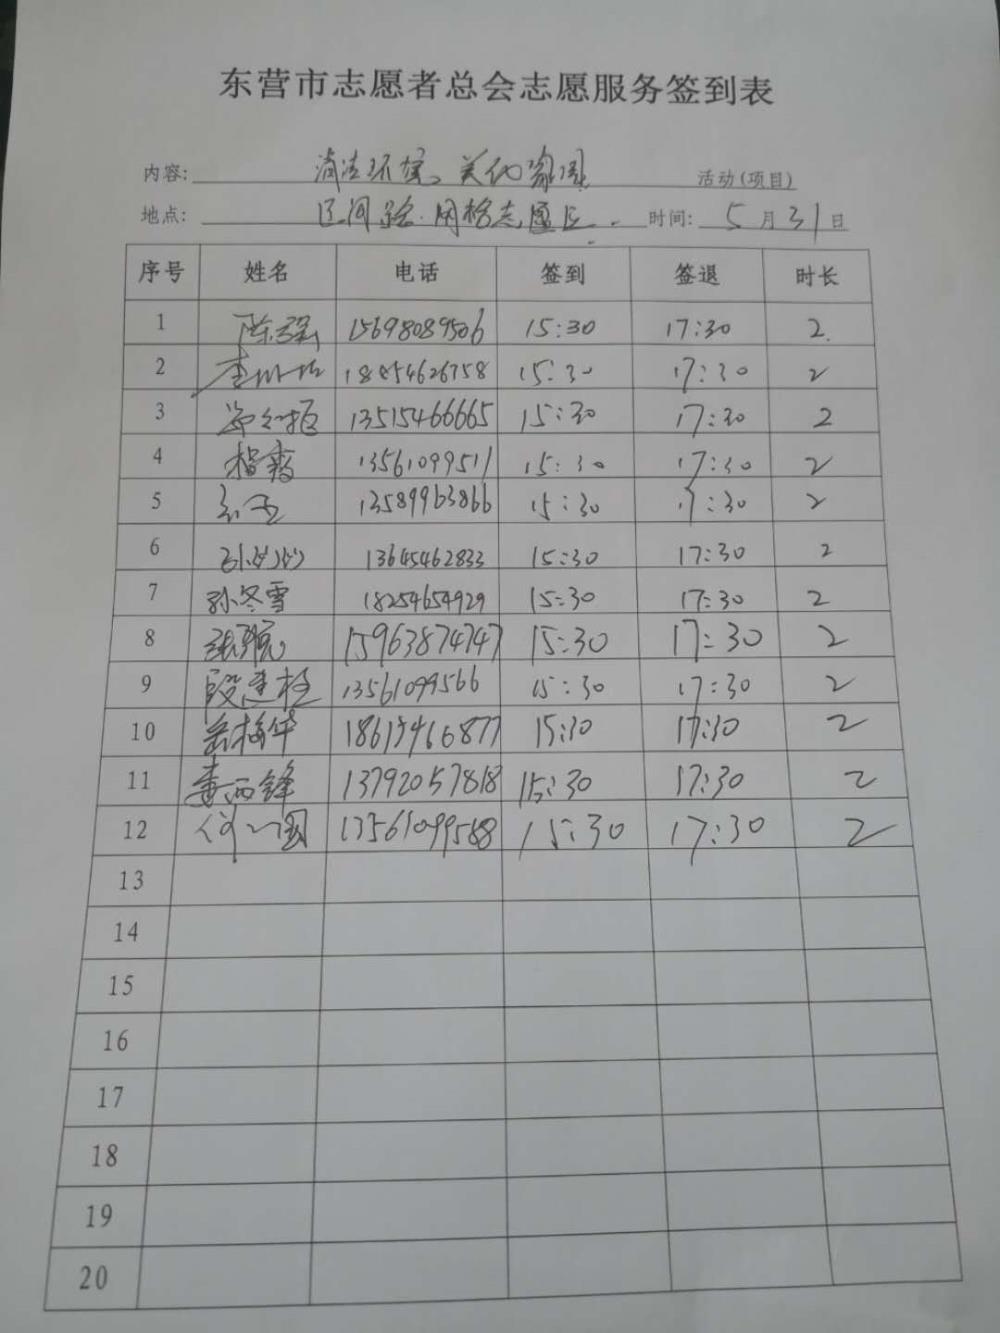 东营市志愿者总会志愿服务签到表
内容: 清洁环境、美化家园 活动(项目)
地点: 网格志愿区. 时间: 5月31日
序号 姓名 电话 签到 签退 时长
1 陈强 15698089506 15:30 17:30 2.
2 18854626758 15:30 17:30 2
3 13515466665 15:30 17:30 2
4 13561099511 15:30 17:30 2
5 13589963866 15:30 17:30 2
6 13645462833 15:30 17:30 2
7 孙冬雪 18254654929 15:30 17:30 2
8 15963874747 15:30 17:30 2
9 段建桂 13561099566 15:30 17:30 2
10 岳梅华 15:30 17:30 2
11 13792057818 15:30 17:30 2
12 13561099588 15:30 17:30 2
13
14
15
16
17
18
19
20